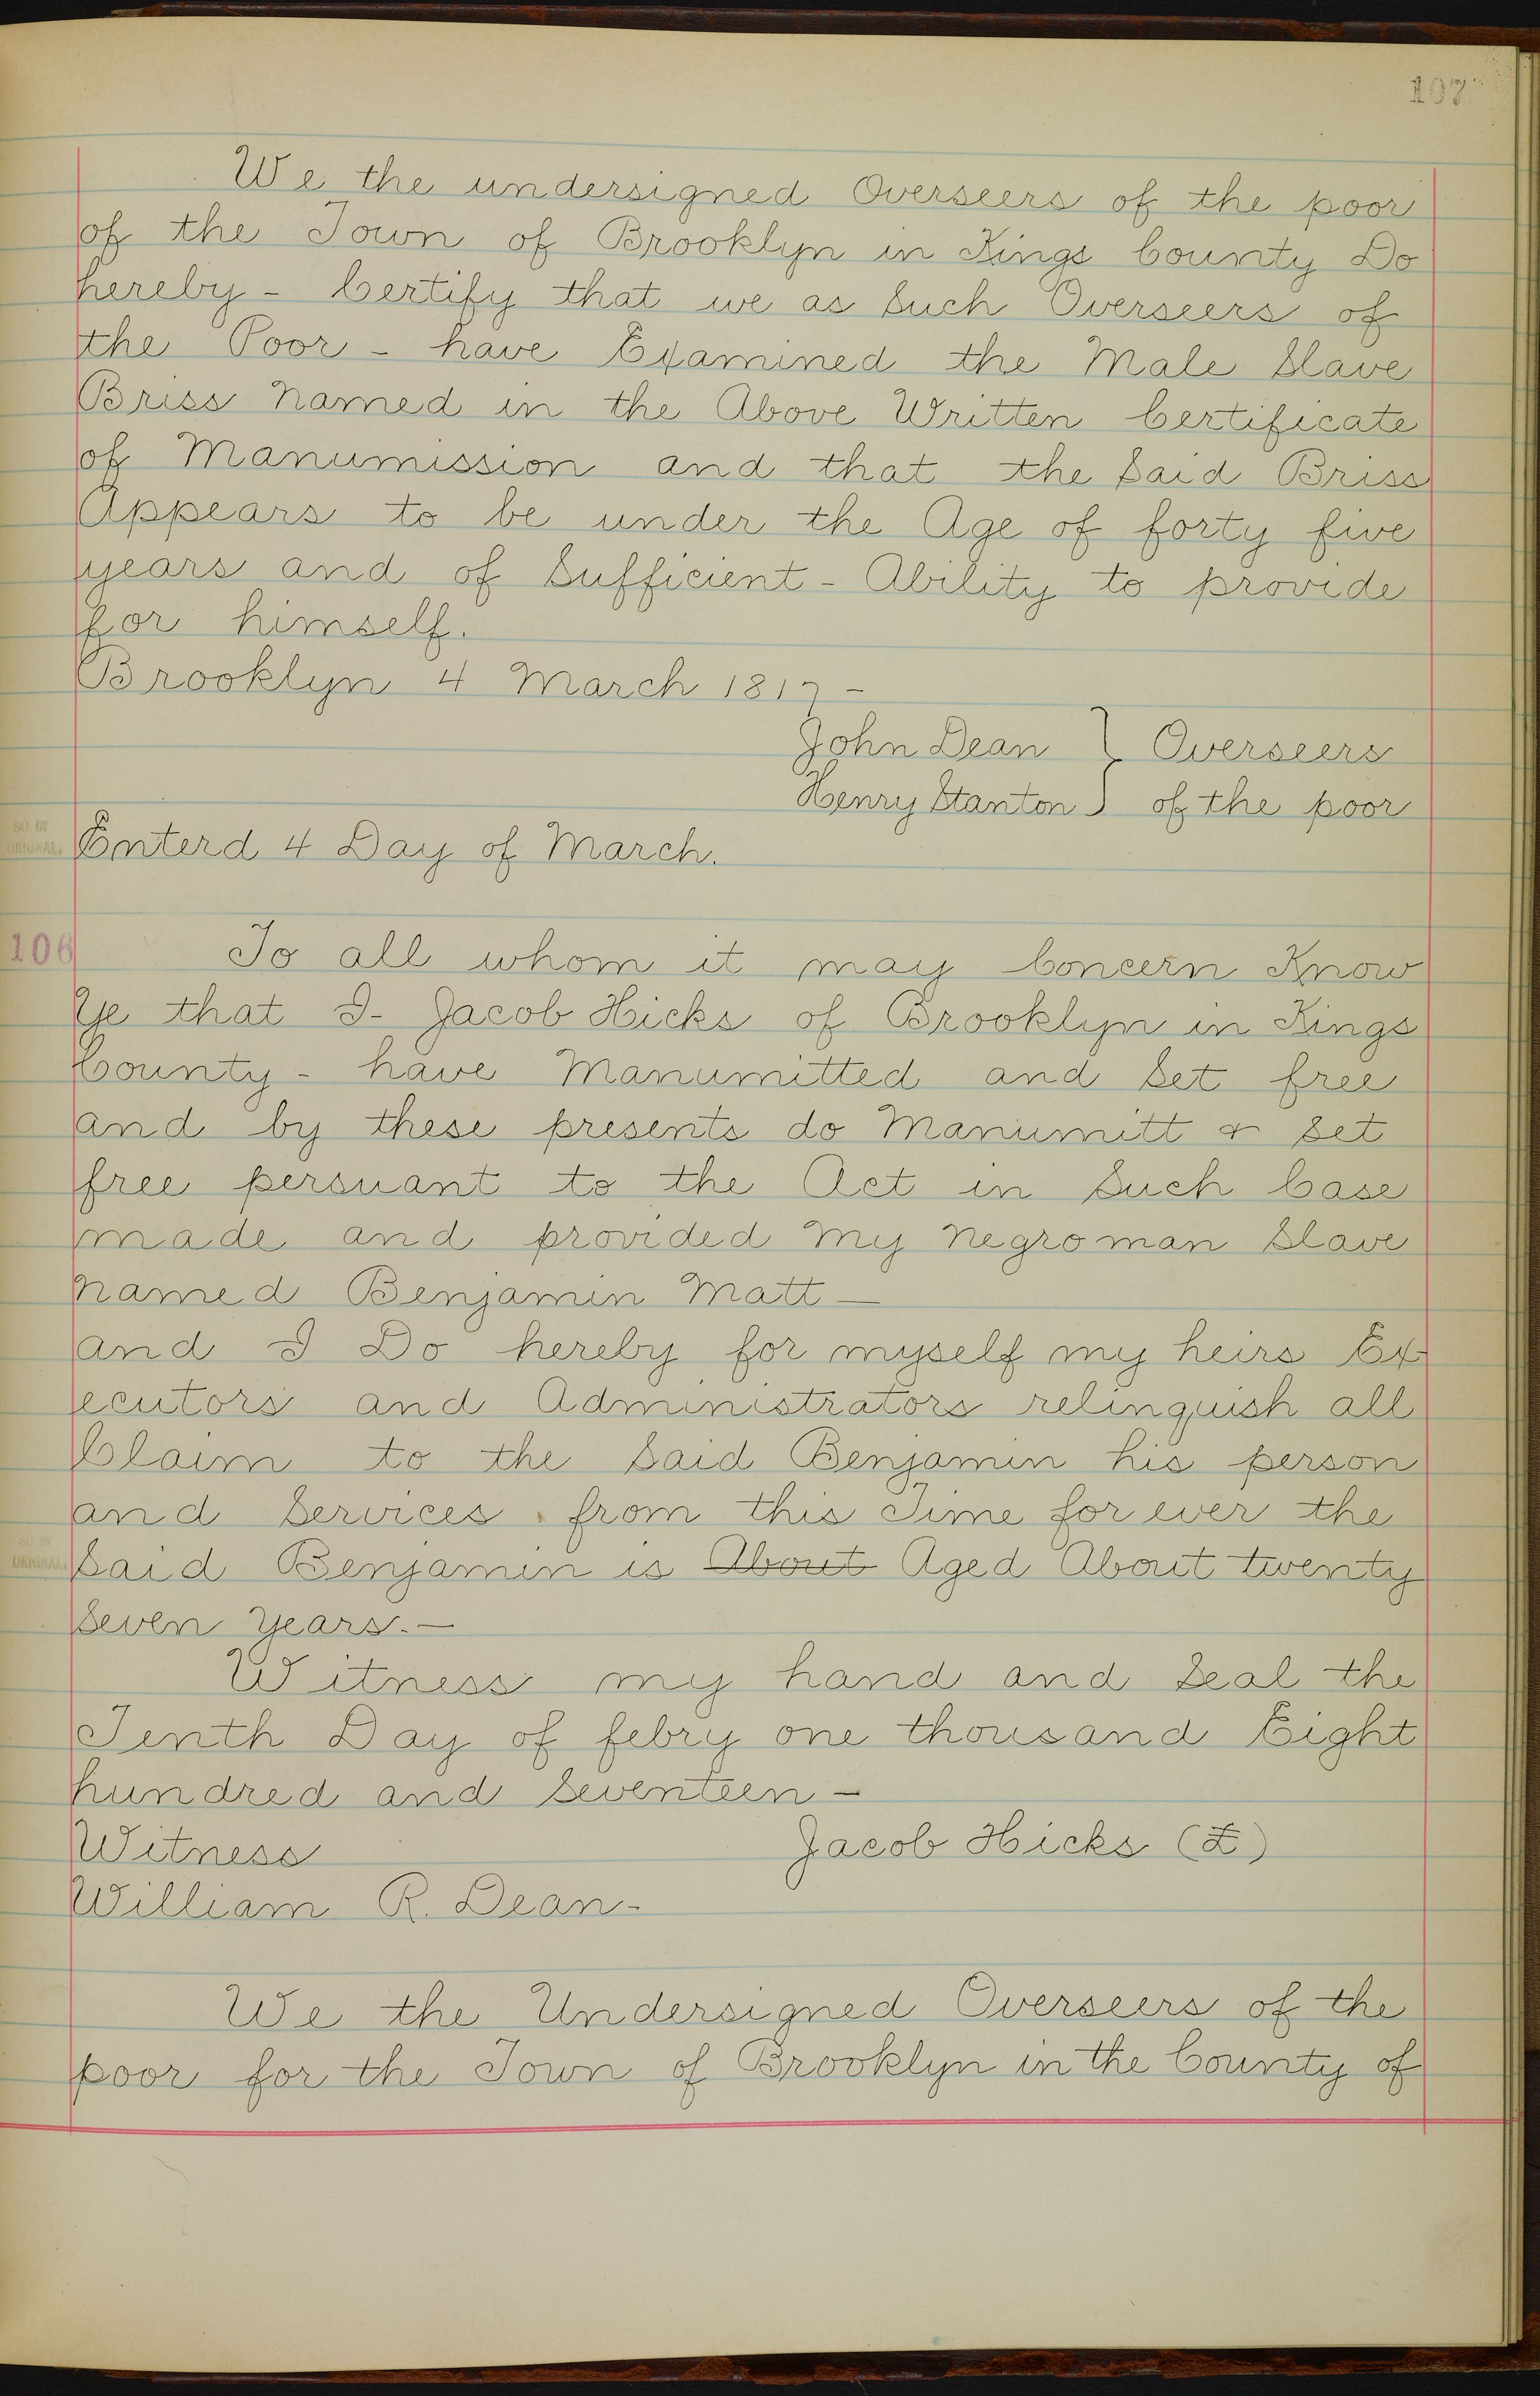 107
We the undersigned Overseers of the poor
of the Town of Brooklyn in Kings County Do
hereby - Certify that we as Such Overseers of
the Poor - have Examined the Male Slave
Briss Named in the Above Written Certificate
of Manumission and that the Said Briss
Appears to be under the Age of forty five
years and of Sufficient - Ability to provide
for himself.
Brooklyn 4 March 1817 -
John Dean } Overseers
Henry Stanton } of the poor
SO IN
ORIGINAL.
Enterd 4 Day of March.
106
To all whom it may Concern Know
Ye that I - Jacob Hicks of Brooklyn in Kings
County - have Manumitted and Set free
and by these presents do Manumitt & Set
free persuant to the Act in Such Case
made and provided My Negro man Slave
Named Benjamin Matt —
and I Do hereby for myself my heirs Ex
ecutors and Administrators relinquish all
Claim to the Said Benjamin his person
and Services from this Time for ever the
SO IN
ORIGINAL.
Said Benjamin is About Aged About twenty
Seven Years. —
Witness my hand and Seal the
Tenth Day of febry one thousand Eight
hundred and Seventeen -
Witness Jacob Hicks (L)
William R. Dean -
We the Undersigned Overseers of the
poor for the Town of Brooklyn in the County of